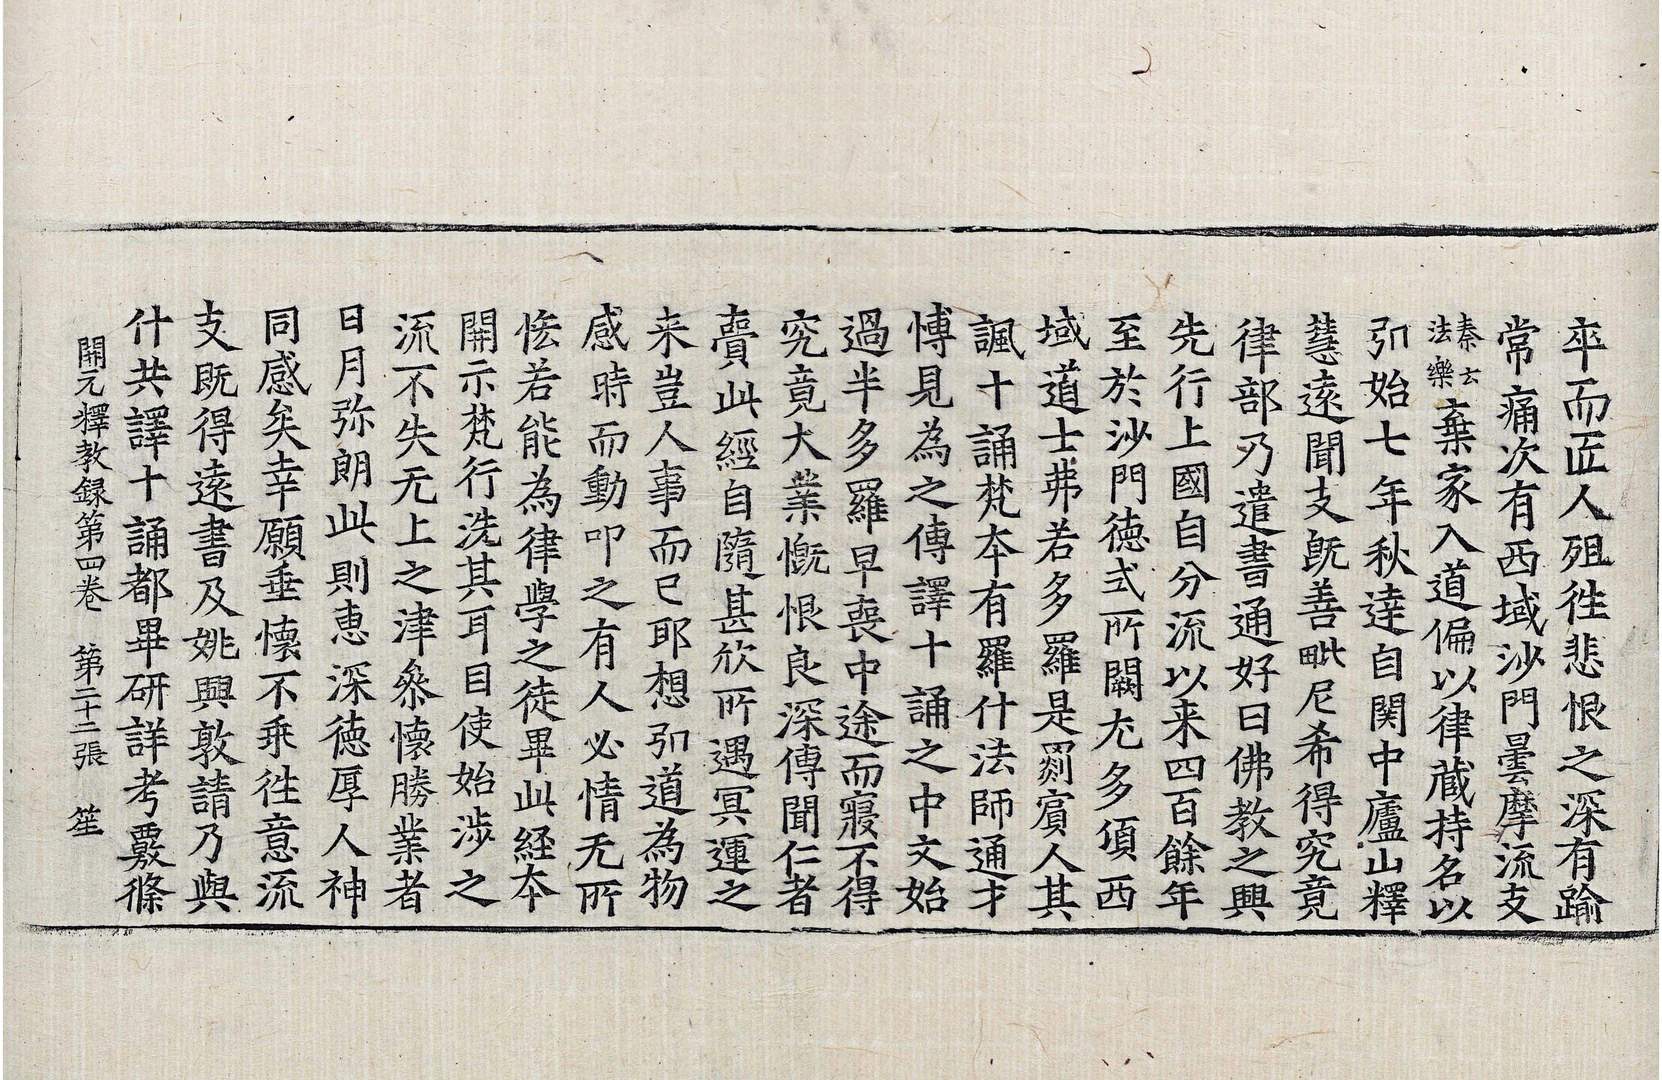 卒而匠人殂徃悲恨之深有踰
常痛次有西域沙門曇摩流支
秦云法樂棄家入道偏以律蔵持名以
弘始七年秋達自関中廬山釋
慧遠聞支既善毗尼希得究竟
律部乃遣書通好曰佛教之興
先行上國自分流以来四百餘年
至於沙門徳式所闕尤多頃西
域道士弗若多羅是罽賓人其
諷十誦梵夲有羅什法師通才
愽見為之傳譯十誦之中文始
過半多羅早喪中途而寢不得
究竟大業慨恨良深傳聞仁者
賷此經自隨甚欣所遇冥運之
来豈人事而已耶想弘道為物
感時而動叩之有人必情无所
恡若能為律學之徒畢此経夲
開示梵行洗其耳目使始涉之
流不失无上之津叅懷勝業者
日月弥朗此則恵深徳厚人神
同感矣幸願垂懐不乖徃意流
支既得遠書及姚興敦請乃與
什共譯十誦都畢研詳考覈條
開元釋教録第四卷　第二十二張　笙